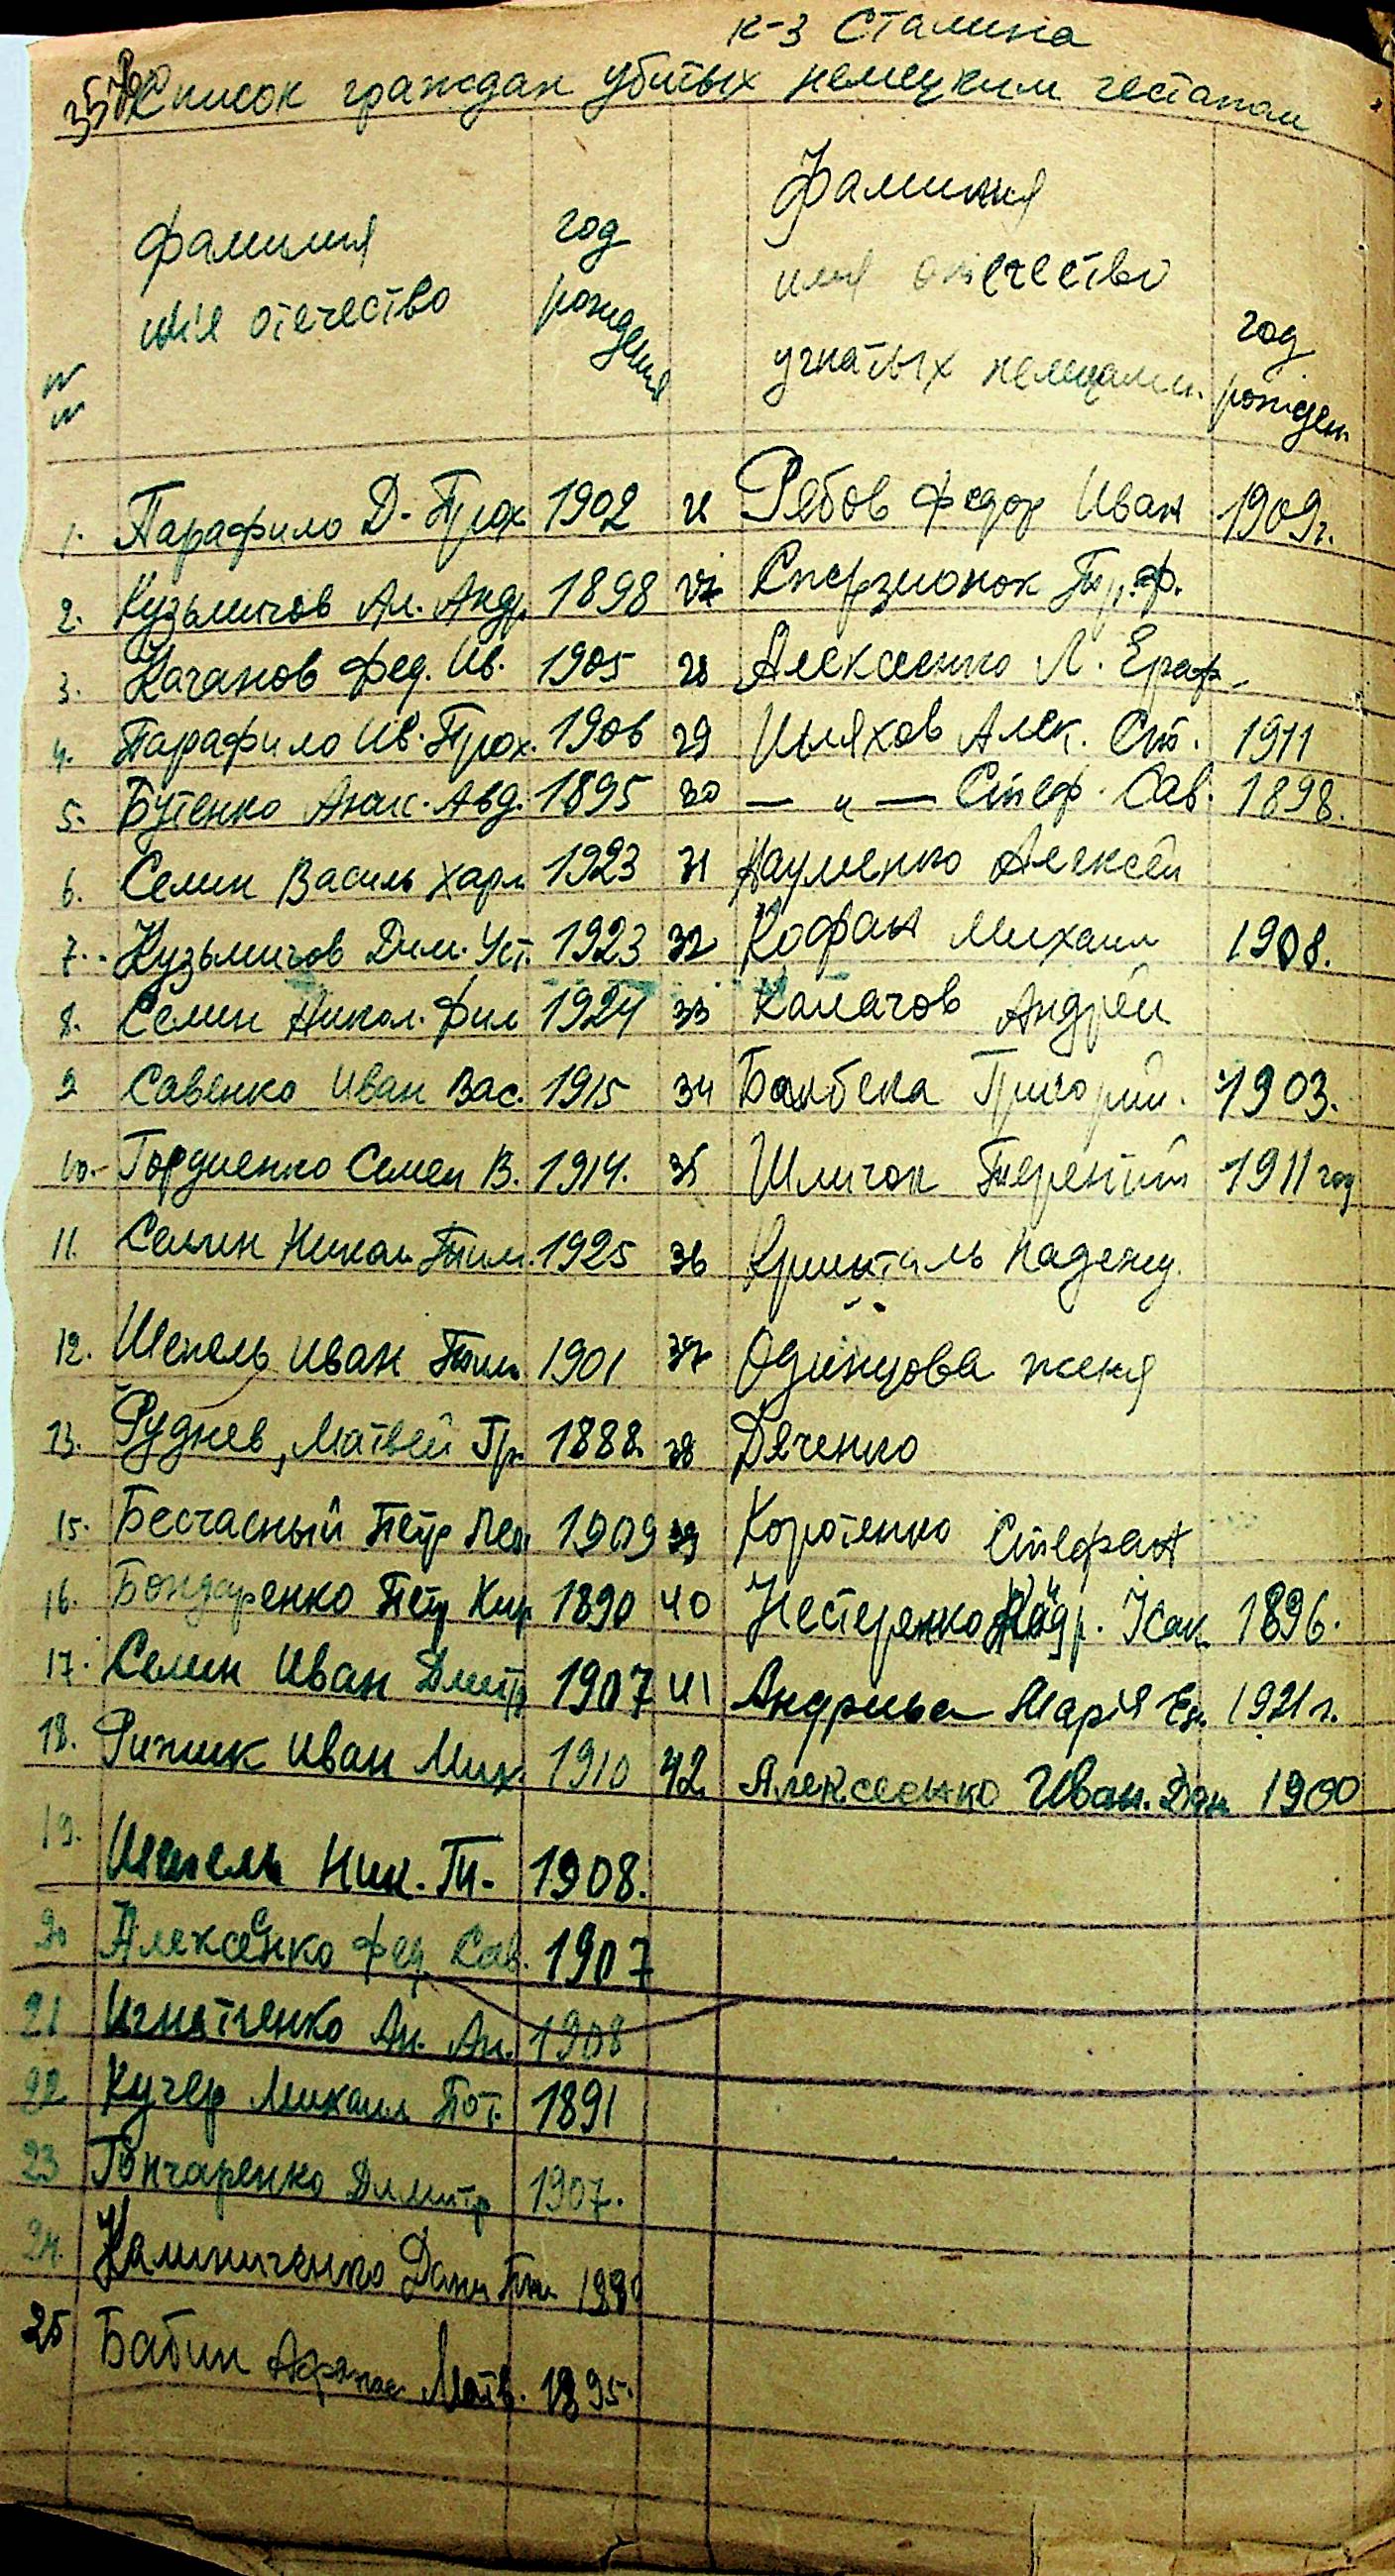 к-з Сталина
Список граждан убитых немецким гестапом
фамилия имя отечество
год рождения
Фамилия имя отечество угнатых немцами
год рожден.
1. Парафило Д. Прох 1902
2. Кузьмичов Ал. Андр. 1898
3. Качанов Фед. Ив. 1905
4. Парафило Ив. Прох. 1906
5. Бутенко Анис. Авд. 1895
6. Семин Василь Харл 1923
7. Кузьмичов Дим. Уст. 1923
8. Семин Никол. Фил 1924
9 Савенко Иван Вас. 1915
10. Гордиенко Семен В. 1914.
11. Семин Никол. Тим. 1925
12. Шепель Иван Тим 1901
13. Руднев, Матвей Гр. 1888.
15. Бесчасный Петр 1909
16. Бондаренко Петр Кир 1890
17. Семин Иван Дмитр 1907
18. Рижик Иван Мих. 1910
19. Шепель Ник. Ти. 1908.
20 Алексеенко Фед. Сав. 1907
21 Игнатченко Ан. Ан. 1908
22 Кучер Михаил Пот. 1891
23 Гончаренко Дмитр 1907.
24. Калиниченко Дани
25 Бабин Афанас Матв. 1895.
26 Рябов Федор Иван 1909г.
27
28 Алексеенко Л. Ераф.
29 Шляхов Алек. Ст. 1911
30 — " — Стеф. Сав. 1898.
31 Науменко Алексей
32 Кофан Михаил 1908.
33 Калачов Андрей
34 Балбека Григорий. 1903.
35 Шличок Терентий 1911 год
36 Кришталь Надежд.
37 Одинцова женя
38 Дяченко
39 Коротенко Стефан
40 Нестеренко Ісак 1896.
41 Марія 1921г.
42 Алексеенко Иван. Дан 1900